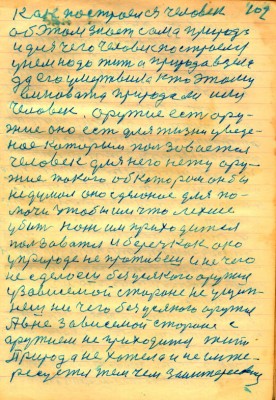 102
Как построился человек
об этом знает сама природа
и для чего человек построен
у нем надо жить а природа взяла
да его умертвила кто этому
виновата природа али или
человек. оружие есть ору-
жие оно есть для жизни уведе-
ное которым пользовается
человек для него нету ору-
жие такого об котором он бы
не думал оно сделоное для по-
мочи чтобы им что легше
убит нож им приходится
ползоватся и беречь как око
у природе не противеш и не чего
не сделоеш без целкого оружия
у зависемой стороне не
неш ни чего без оружия
А в не зависемой стороне с
оружием не приходится жит
Природа не хотела и не инте-
ресуется тем чем заинтересован